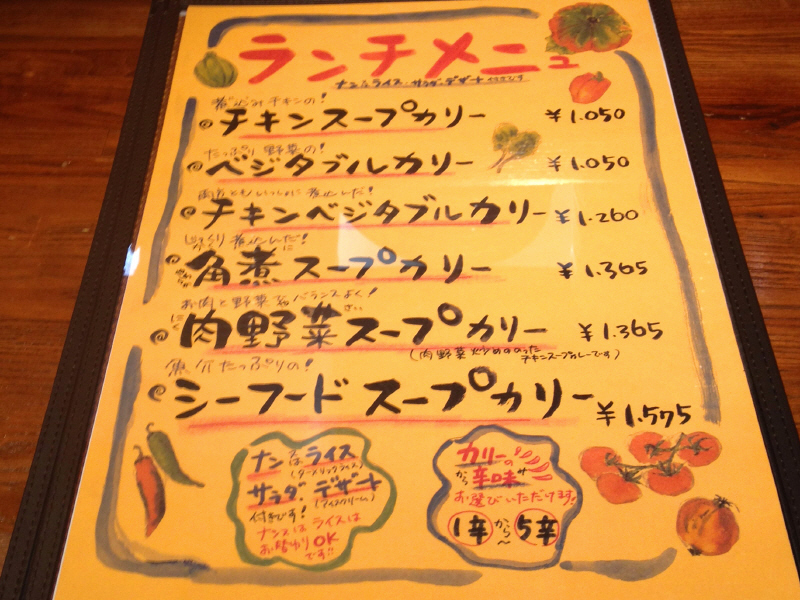 ランチメニュー
ナンorライス・サラダ・デザート付きです
煮込みチキンの!
チキンスープカリー ¥1.050
たっぷり野菜の!
ベジタブルカリー ¥1.050
両方ともいっしょに煮込んだ!
チキンベジタブルカリー ¥1.260
じっくり煮込んだ!
角煮スープカリー ¥1.365
お肉と野菜をバランスよく!
肉野菜スープカリー ¥1.365
(肉野菜炒めののった
チキンスープカレーです)
魚介たっぷりの!
シーフードスープカリー ¥1.575
ナンorライス
(ターメリックライス)
サラダ、デザート
(アイスクリーム)
付きです!
ナン又はライスは
お替わりOK
です!!
カリーの
辛味
から
お選びいただけます!
1辛から〜5辛